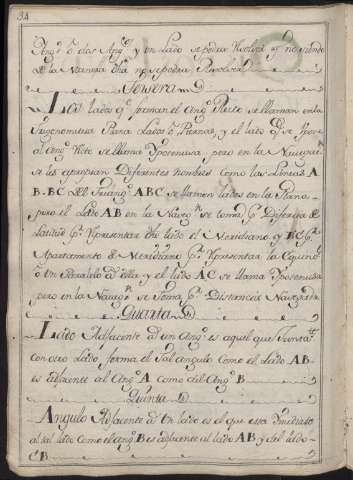 34
Ang.º ô dos Ang.s y un Lado se podra Resolver y no siendo
de la Manera dha no se podra Resolver
Tersera D
Los lados q.e forman el Ang.º Recto se llaman en la
Trigonometria Plana Lados ô Piernas, y el lado q.e se opone
al Ang.º Recto se llama Ypotenusa, pero en la Navegaz.n
se les apropian Diferentes nombres como las Lineas A
B. BC del Triang.º ABC se llamen lados en la Plana
pero el Lado AB en la Naveg.n se toma p.r Diferensia de
Latitud p.r Representar dho lado el Meridiano y BC p.r
Apartamento de Meridiano p.r Representar la Equinō
ô Un Paralelo â ella y el lado AC se llama Ypotenusa
pero en la Navag.n se toma p.r Distancia Navegada
Quarta D
Lado Adjasente âd un Ang.º es aquel que Junta
con otro Lado forma el tal angulo como el Lado AB
es adjasente al Ang.º A como del Ang.º B
Quinta D
Angulo Adjasente âd Un lado es el que esta Ynmediato
al tal lado como el Ang.º B es adjasente al lado AB y del lado
CB